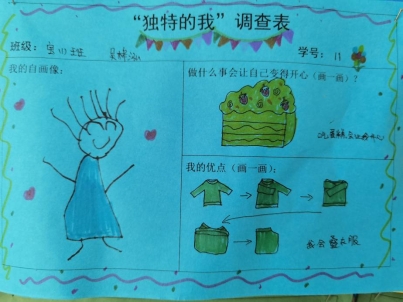 “独特的我”调查表
班级：宝川班
学号：11
我的自画像：
做什么事会让自己变得开心（画一画）？
吃蛋糕会让我开心
我的优点（画一画）：
我会叠衣服